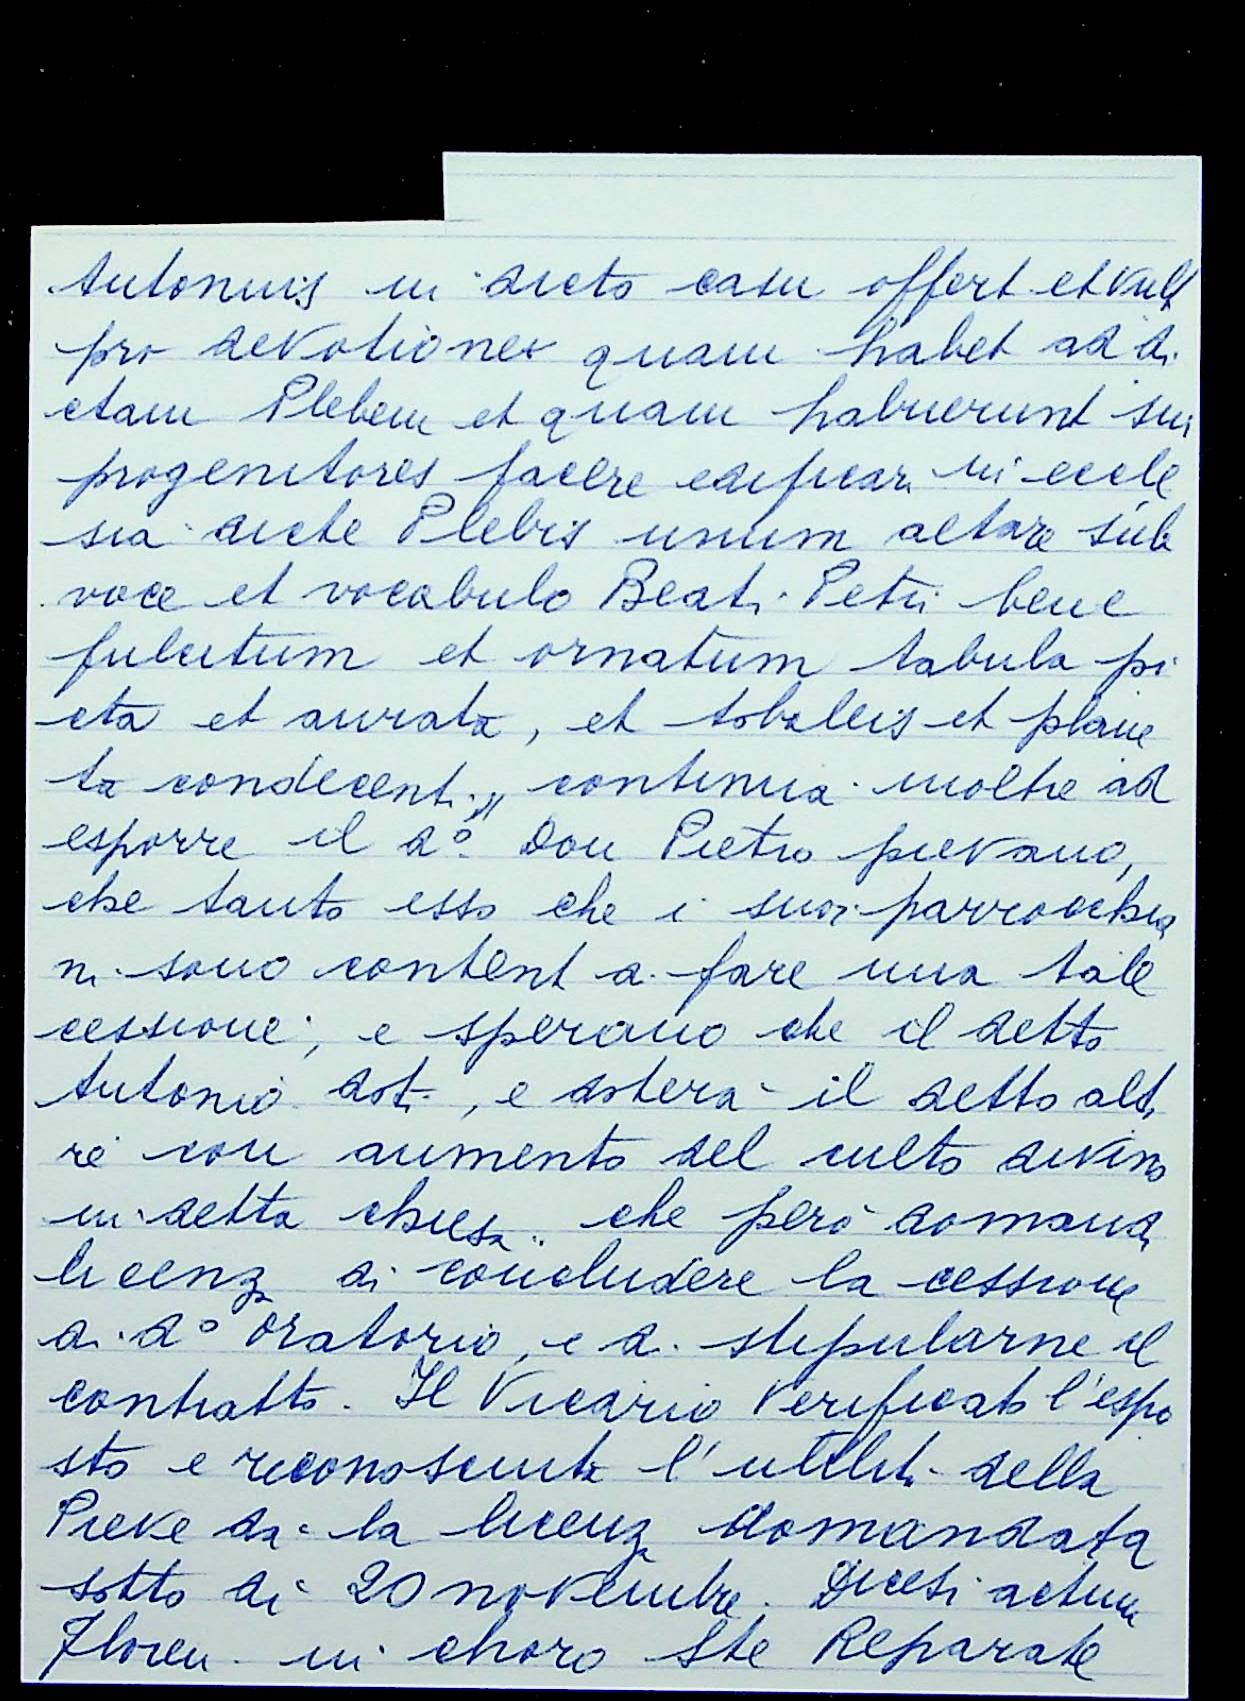 Antonius in dicto casu offert et vult
pro devotione quam habet ad di
ctam Plebem et quam habuerunt sui
progenitores facere edificari in eccle
sia dicte Plebis unum altare sub
voce et vocabulo Beati Petri bene
fulcitum et ornatum tabula pi
cta et aurata, et tobaleis et plane
ta condecenti" continua inoltre ad
esporre il dº Don Pietro pievano,
che tanto esso che i suoi parrocchia
ni sono contenti a fare una tale
cessione, e sperano che il detto
Antonio doti, e doterà il detto alta
re con aumento del culto divino
in detta chiesa.. che però domanda
licenza di concludere la cessione
di dº Oratorio, e di stipularne il
contratto. Il Vicario Verificato l'espo
sto e riconosciuta l'utilità della
Pieve dà la licenza domandata
sotto dì 20 novembre. Dicesi actum
Floren. in choro Ste Reparate